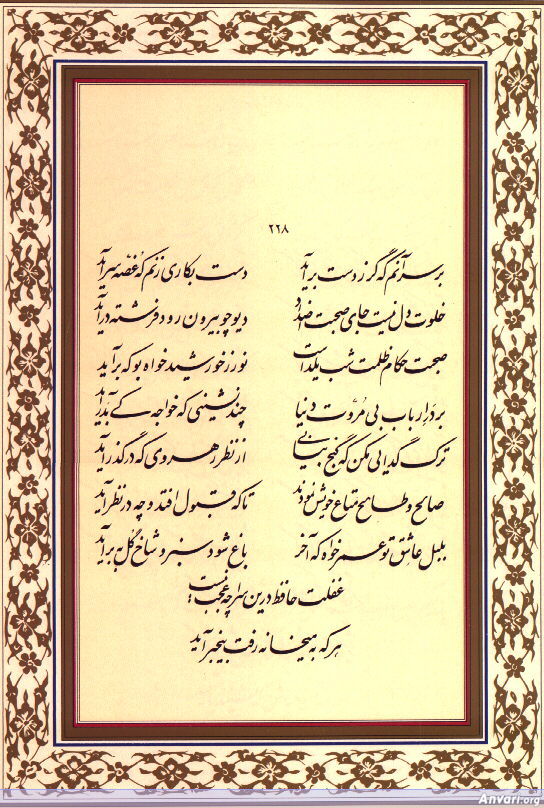 ۲۲۸
بر سر آنم که گر ز دست برآید دست بکاری زنم که غصه سرآید
خلوت دل نیست جای صحبت اضداد دیو چو بیرون رود فرشته درآید
صحبت حکام ظلمت شب یلداست نور ز خورشید خواه بو که برآید
بر در ارباب بی مروّت دنیا چند نشینی که خواجه کی بدرآید
ترک گدایی مکن که گنج بیابی از نظر رهروی که در گذر آید
صالح و طالح متاع خویش نمودند تا که قبول افتد و چه در نظر آید
بلبل عاشق تو عمر خواه که آخر باغ شود سبز و شاخ گل ببر آید
غفلت حافظ درین سراچه عجب نیست
هر که به میخانه رفت بیخبر آید
Anvari.org